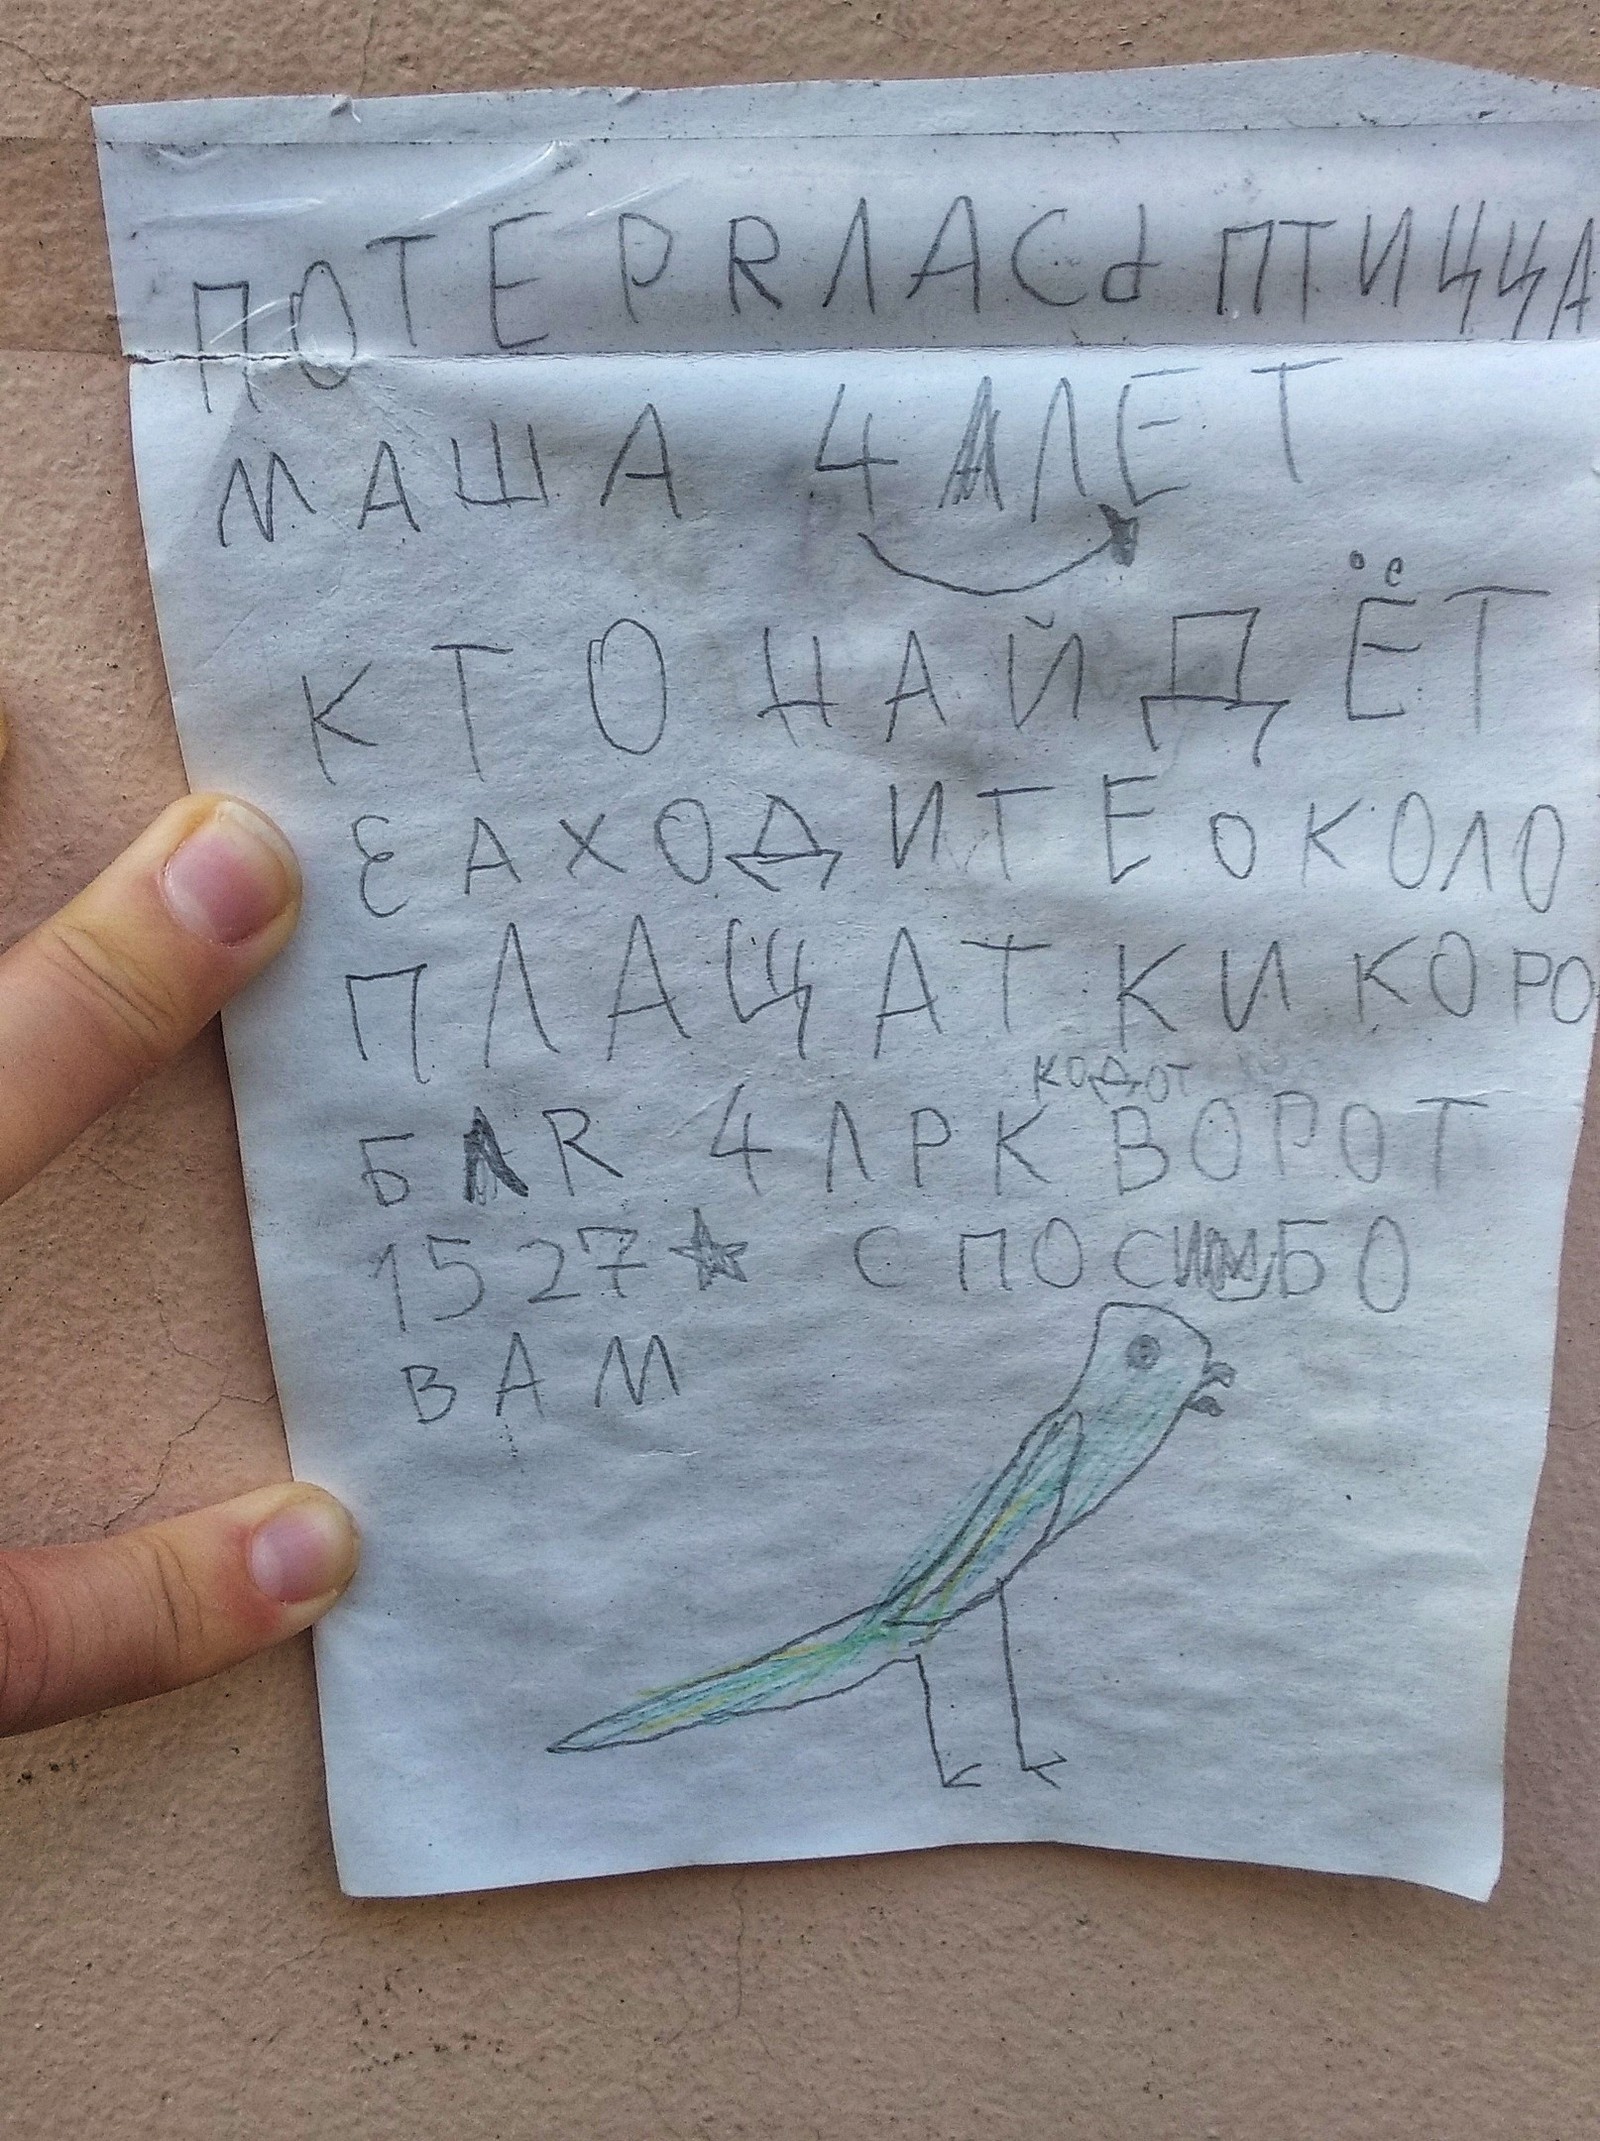 ПОТЕРЯЛАСЬ ПТИЦЦА
МАША 4 ЛЕТ
КТО НАЙДЁТ
ЗАХОДИТЕ ОКОЛО
ПЛАЩАТКИ КОРО
БЛЯ 4 ЛРК ВОРОТ
КОД ОТ
1527☆ СПОСИБО
ВАМ